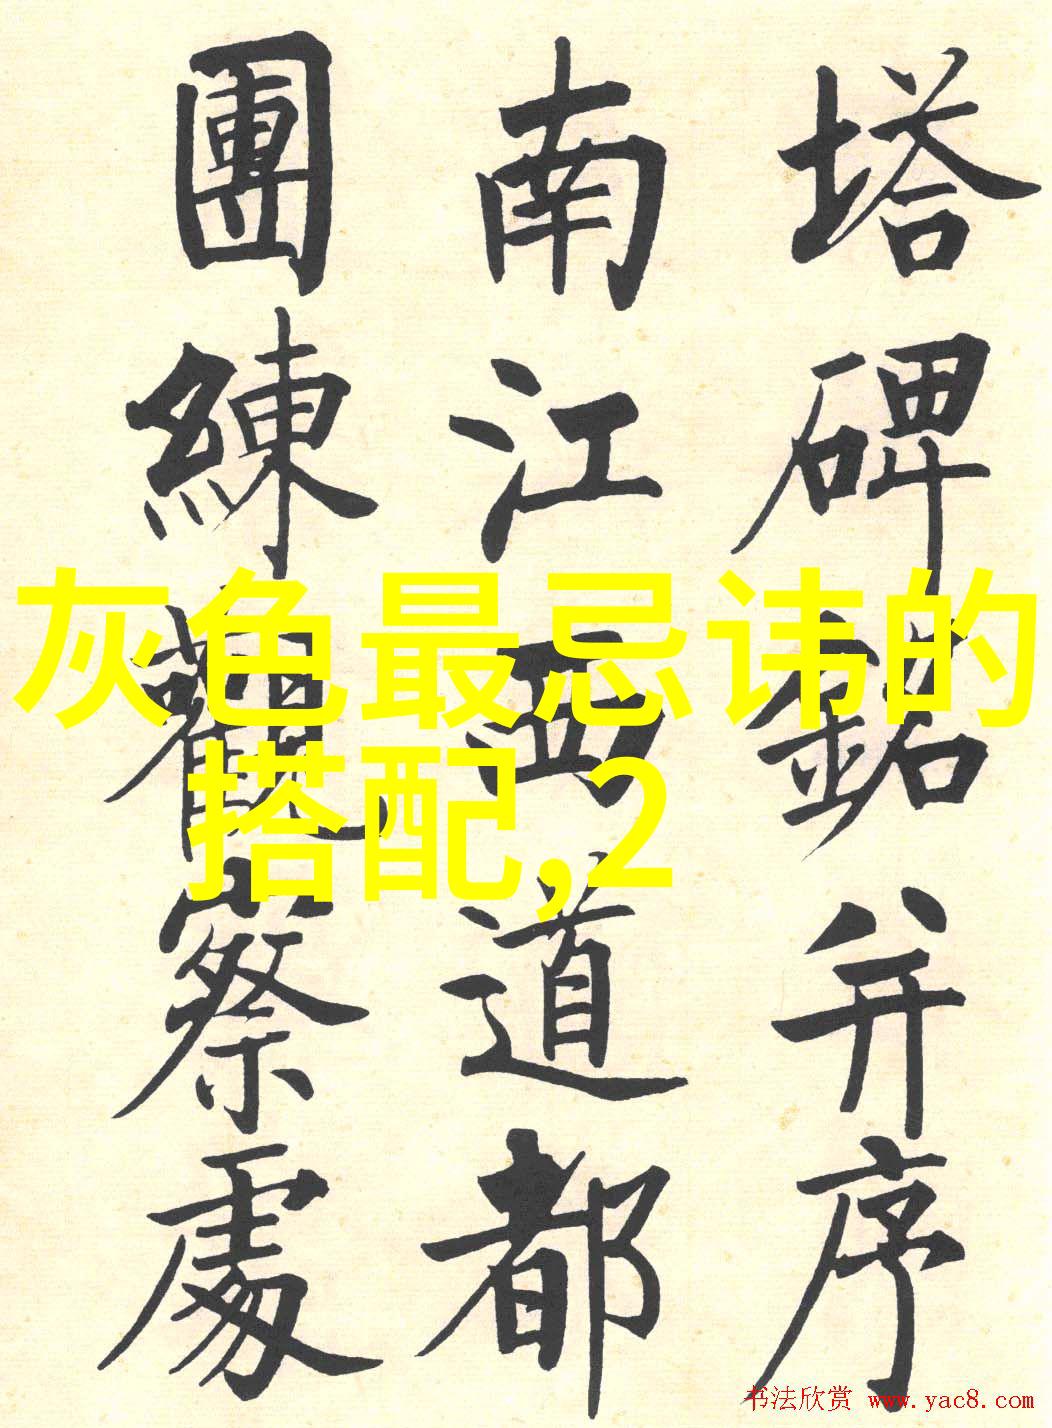 塔碑銘并序
南江西道都
團練觀察處
灰色最忌讳的
搭配,2
书法欣赏 www.yac8.com